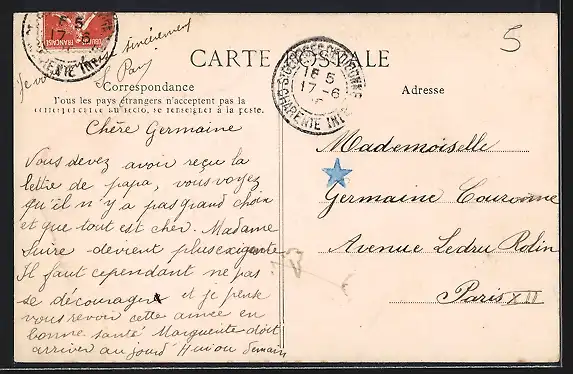 5
CARTE POSTALE
Je vous embrasse sincèrement
Correspondance
Tous les pays étrangers n'acceptent pas la
correspondance au recto, se renseigner à la poste.
Adresse
ST GEORGES DE DIDONNE
1E 5
17 -6
CHARENTE INF
5
17 -6
CHARENTE INF
Chère Germaine
Vous devez avoir reçu la
lettre de papa, vous voyez
qu'il n'y a pas grand choix
et que tout est cher. Madame
Suire devient plus exigente
Il faut cependant ne pas
se décourager et je pense
vous revoir cette année en
bonne santé Marguerite doit
arriver aujourd'hui ou demain
Mademoiselle
Germaine Couronne
Avenue Ledru Rolin
Paris XII